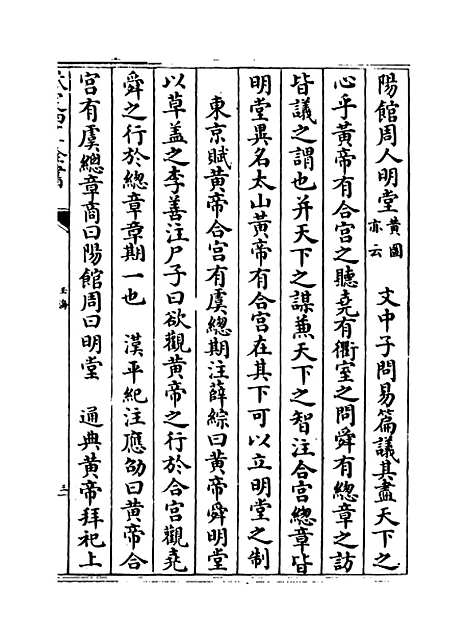 陽館周人明堂黃圖亦云　文中子問易篇議其盡天下之
心乎黃帝有合宮之聽堯有衢室之問舜有總章之訪
皆議之謂也并天下之謀兼天下之智注合宮總章皆
明堂異名太山黃帝有合宮在其下可以立明堂之制
東京賦黃帝合宮有虞總期注薛綜曰黃帝舜明堂
以草盖之李善注尸子曰欲觀黃帝之行於合宮觀堯
舜之行於總章章期一也　漢平紀注應劭曰黃帝合
宮有虞總章商曰陽館周曰明堂　通典黃帝拜祀上
玉海